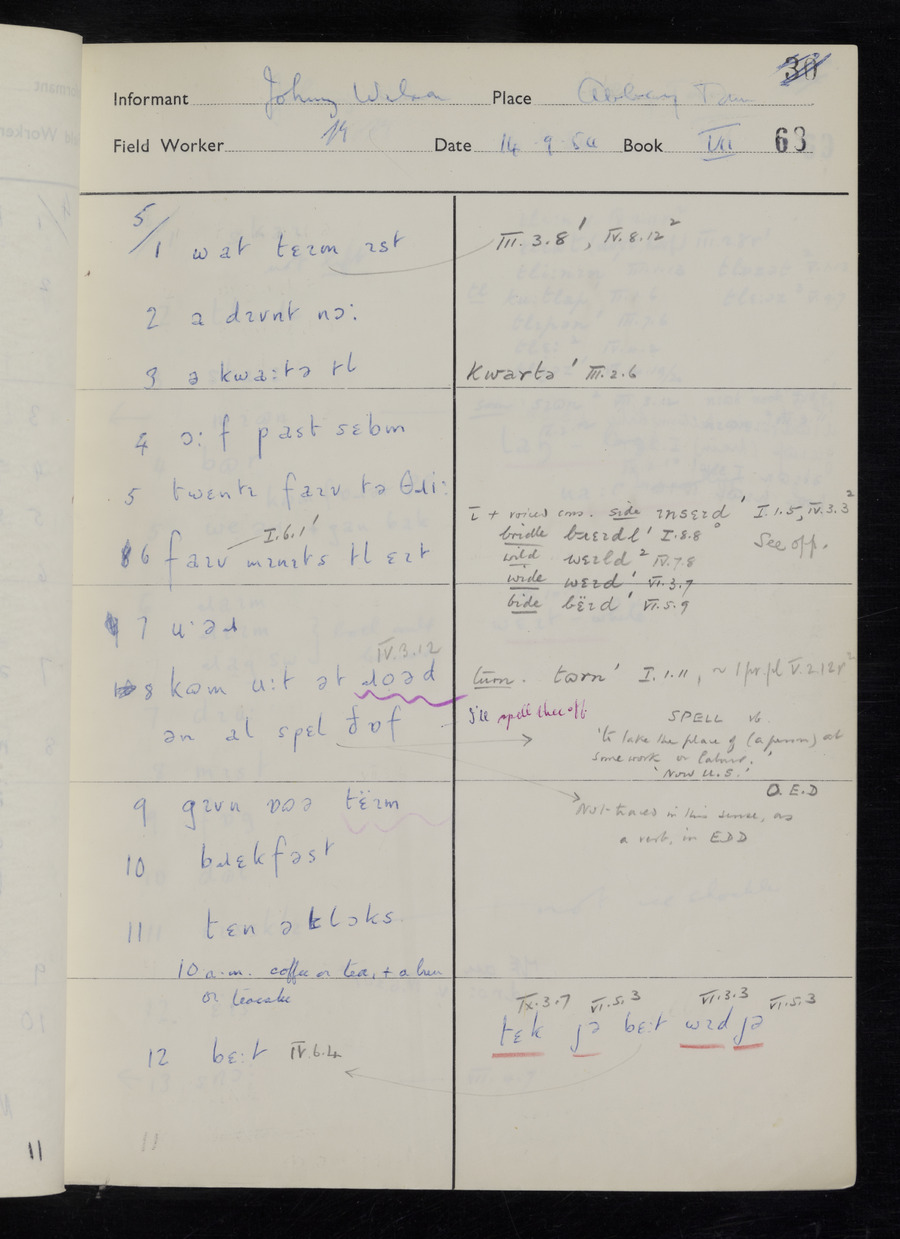 30
Informant Johnny Wilson Place
Field Worker Date 14.9.54 Book VII 63
5/
1 wat tɛɪm ɪst
III.3.8', IV.8.12²
2 a dɪvnt nɔ:
3 a kwa:tə tl
kwartə ' III.2.6
4 ɔ:f past sɛbm
5 twɛntɪ faɪv tə θɹi:
ī + voiced cons. side ɪnsɛɪd ' I.1.5, IV.3.3²
I.6.1'
bridle bɹɛɪdl ' I.8.8
See opp.
6 faɪv mɪnɪts tl ɛɪt
wild wɛɪld ² IV.7.8
wide wɛɪd ' VI.3.7
bide bëɪd ' VI.5.9
7 u:əɹ
IV.3.12
8 kəm u:t ət ɹoəd
turn. tɔrn ' I.1.11, ~ 1 pr.pl V.2.12²
ən al spɛl ðə ɒf
I'll spell thee off
SPELL vb.
'to take the place of (a person) at
some work or labour.'
'Now U.S.'
O.E.D
9 gɪvn ɒoə tëɪm
Not traced in this sense, as
a verb, in EDD
10 bɹɛkfəst
11 tɛn ə klɔks
10 a.m. coffee or tea, + a bun
or teacake
IX.3.7 VI.5.3 VI.3.3 VI.5.3
tɛk jə bɛ:t wɪd jə
12 bɛ:t IV.6.4
11
11